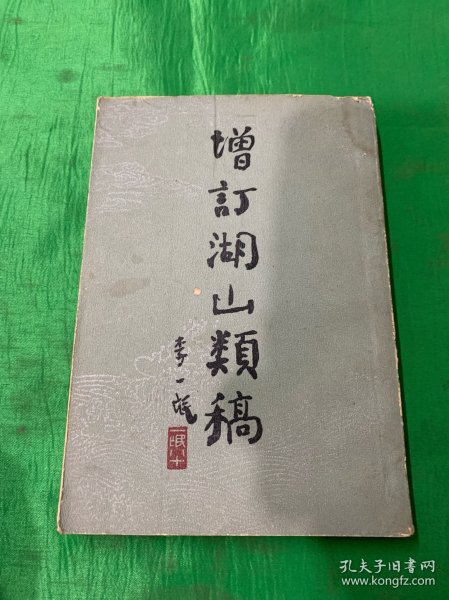 增訂湖山類稿
李一氓
孔夫子旧书网
www.kongfz.com